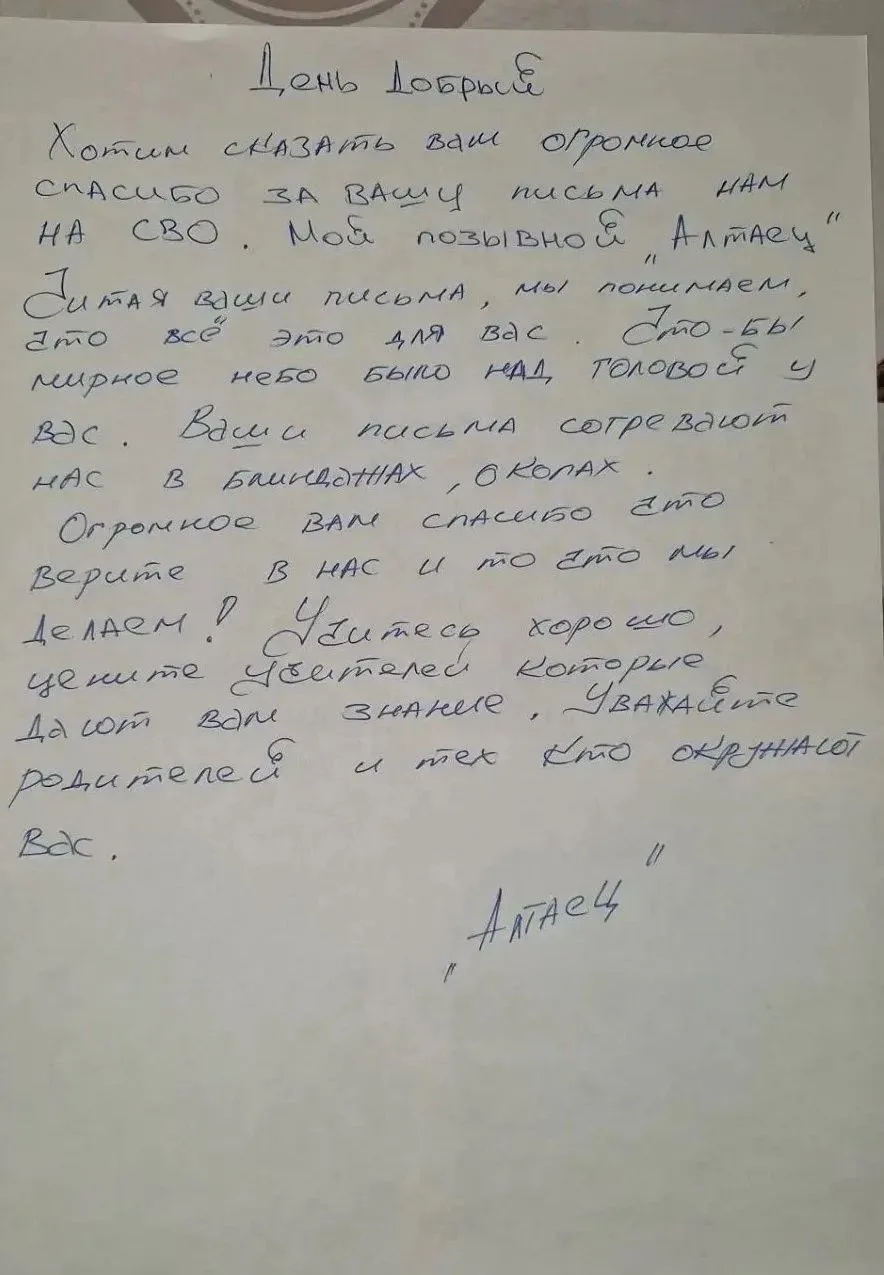 День Добрый
Хотим сказать ваш огромное
спасибо за вашу письма нам
на СВО. Мой позывной „Алтаец"
Читая ваши письма, мы понимаем,
что всё это для вас. Что-бы
мирное небо было над головой у
вас. Ваши письма согревают
нас в блиндажах, окопах.
Огромное вам спасибо что
верите в нас и то что мы
делаем! Учитесь хорошо,
цените учителей которые
дают вам знание. Уважайте
родителей и тех кто окружают
вас.
„Алтаец"